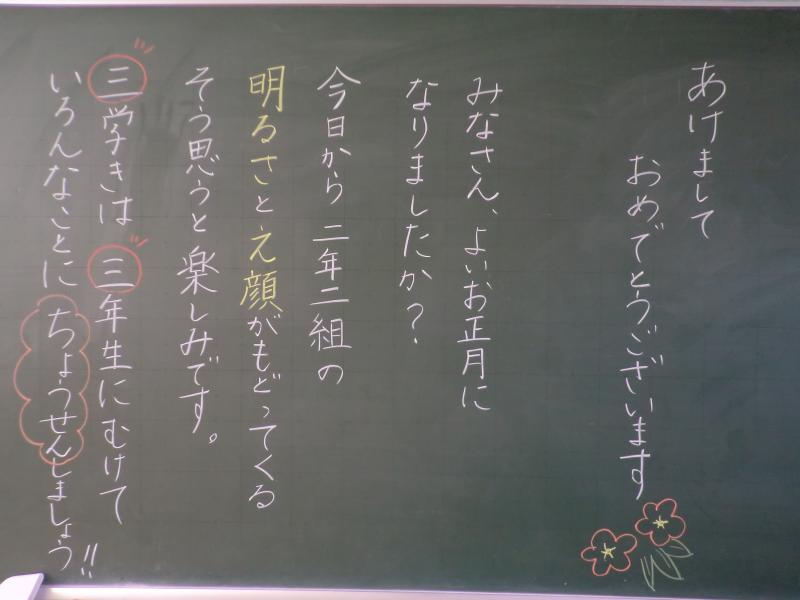 あけまして
おめでとうございます
みなさん、よいお正月に
なりましたか？
今日から二年二組の
明るさとえ顔がもどってくる
そう思うと楽しみです。
三学きは三年生にむけて
いろんなことにちょうせんしましょう!!